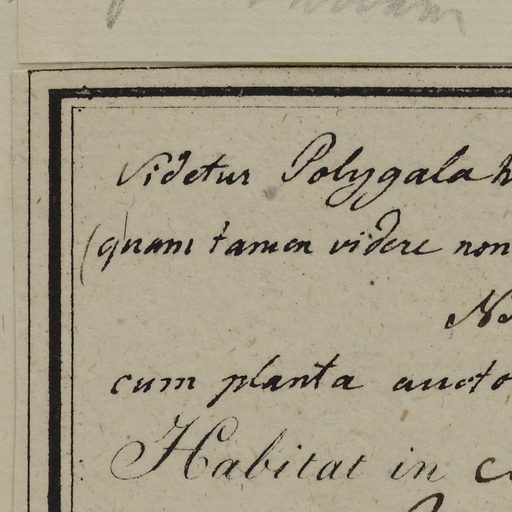 Videtur Polygala
(quam tamen videre non
cum planta
Habitat in